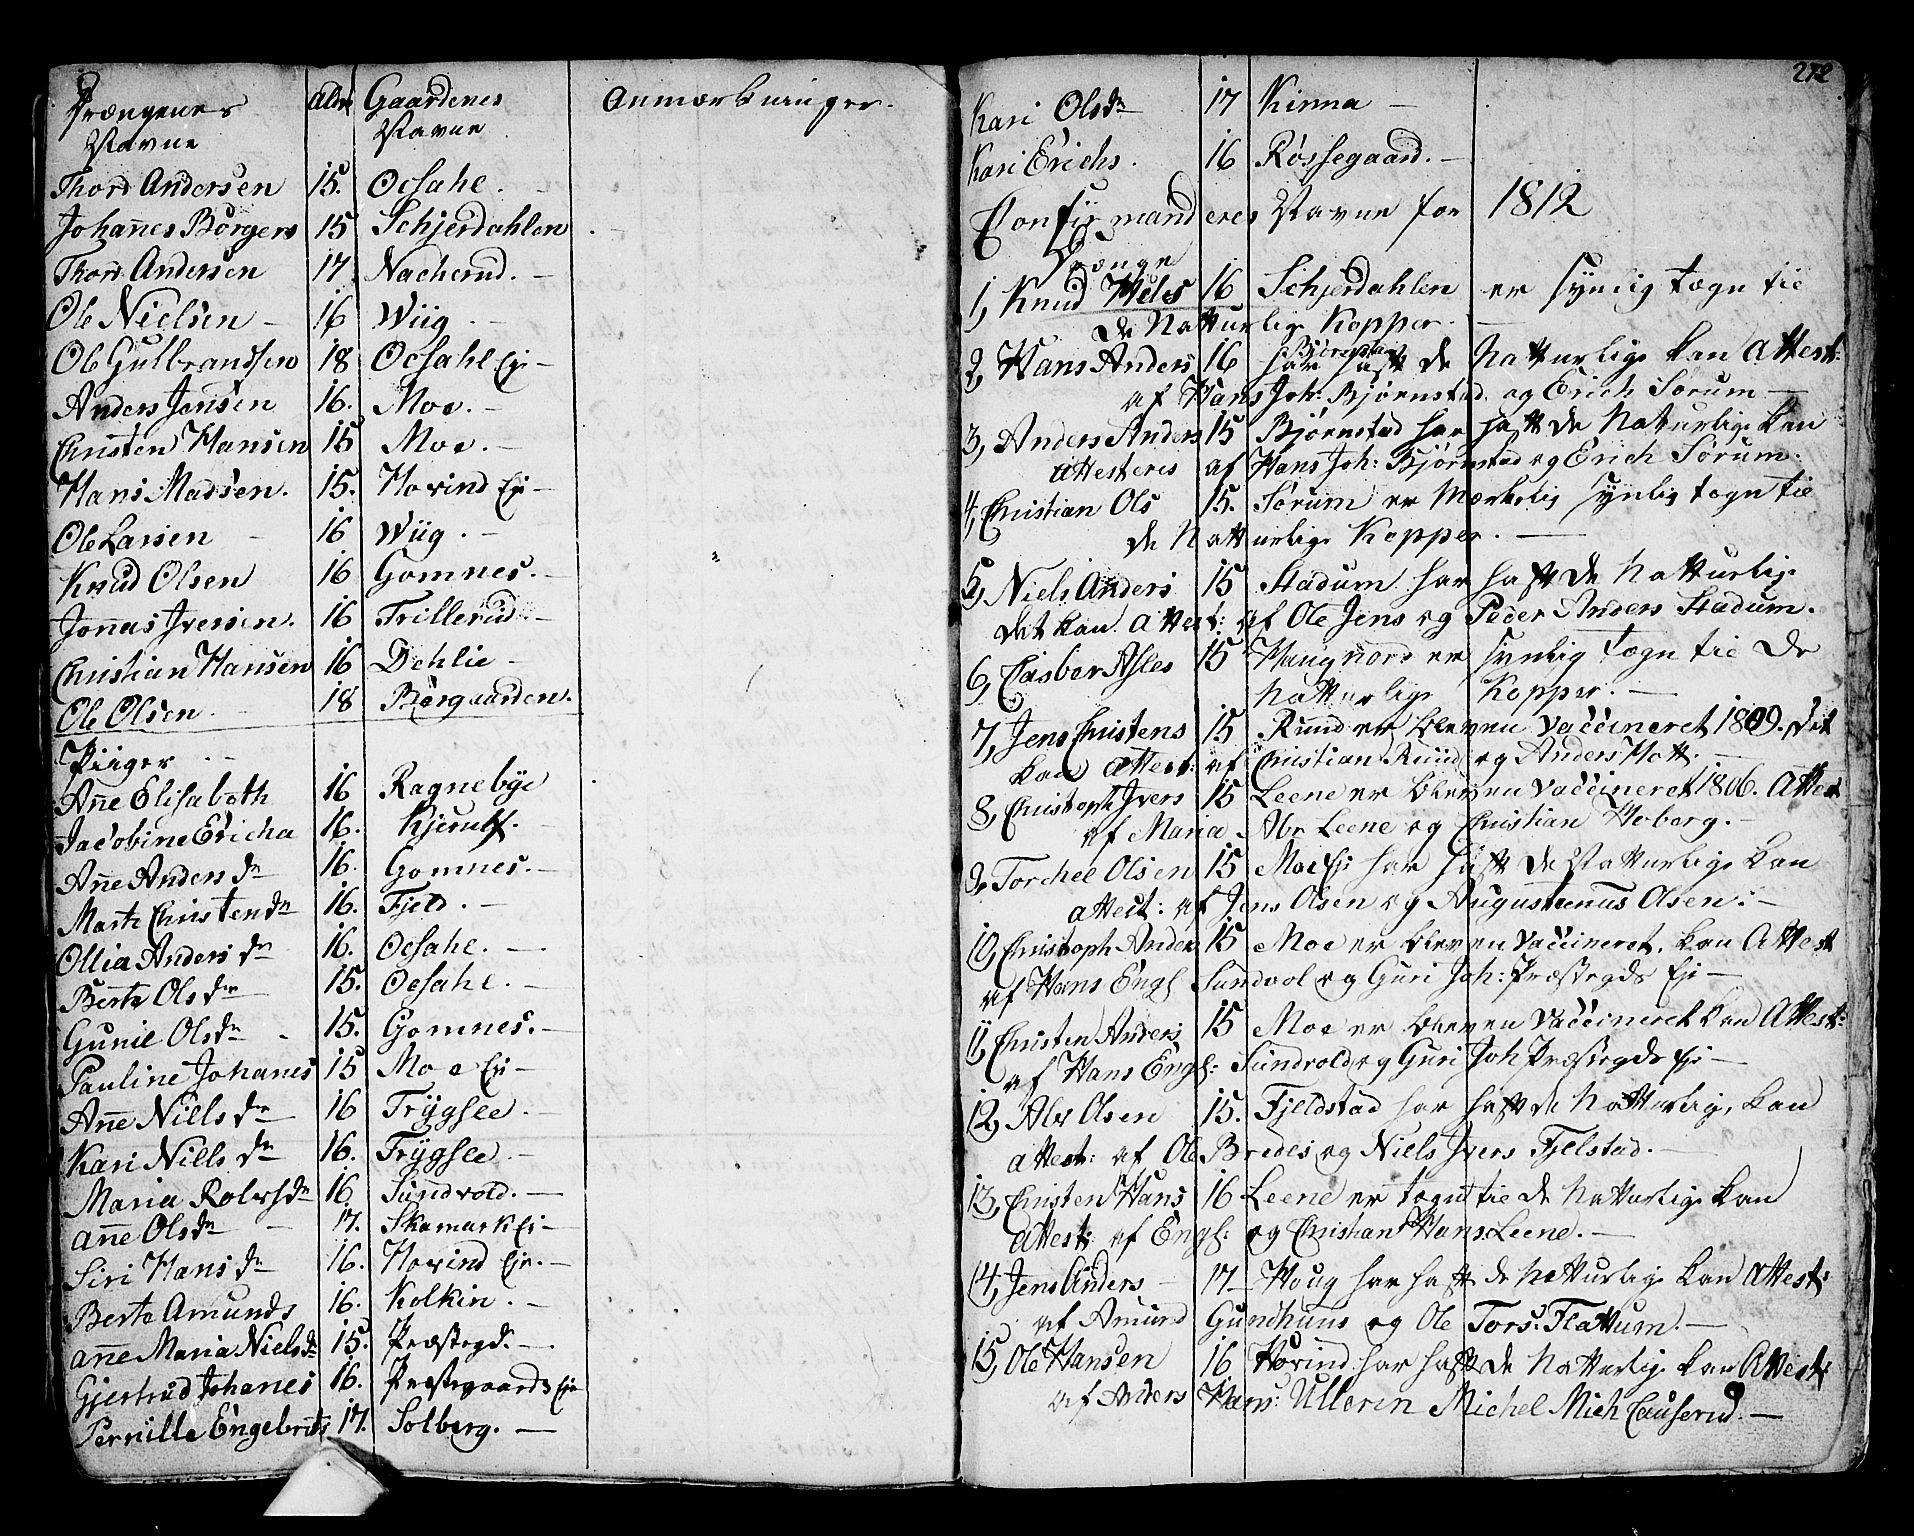 Drængenes Navne Alder Gaardenes Navne Anmærkninger.
Thord Andersen 15. Oesahl. -
Johañes Borgers 15 Schjerdahlen
Thord Andersen 17 Nacherud. -
Ole Nielsen - 16 Wiig -
Ole Gulbrandsen 18 Oesahl Ej -
Anders Jensen 16. Moe. -
Christen Hansen 15 Moe. -
Hans Madsen. 15. Hovind Ej -
Ole Larsen - 16 Wiig. -
Knud Olsen 16 Gomnes. -
Joñas Iversen. 16 Trillerud -
Christian Hansen 16 Dehlie -
Ole Olsen - 18 Borgaarden.
Piiger
Añe Elisabeth 16 Ragnebye
Jacobine Ericha 16. Kjerulf. -
Añe Anders dr 16. Gomnes. -
Marte Christen dr 16. Fjeld. -
Ollia Anders dr 16. Oesahl. -
Berte Ols dr 15. Oesahl. -
Gunil Ols dr - 15. Gomnes. -
Pauline Johanes 15 Moe Ej -
Añe Niels dr 16 Trygsle. -
Kari Niells dr 16. Trygsle. -
Maria Rolvs dr 16 Sundvold. -
añe Ols dr - 17. Skamark Ej -
Siri Hans dr 16. Hovind Ej. -
Berte Amunds 16. Kolkin. -
añe Maria Niels dr 15. Præstegd. -
Gjertrud Johanes 16. Præstegaards Ej
Pernille Engebrits 17. Solberg. -
272
Kari Ols dr 17 Kinna -
Kari Erichs. 16 Røssegaard. -
Confirmanderes Navne for 1812
Drænge
1, Knud Niels 16 Schjerdahlen er synlig tægn til
De Naturlige Kopper.
2, Hans Anders 16 Bjørnstad har haft de Natturlige kan Attest:
af Hans Joh: Bjørnstad og Erich Sørum -
3, Anders Anders 15 Bjørnstad har haft de Naturlige kan
attesteres af Hans Joh: Bjørnstad og Erich Sørum.
4, Christian Ols 15. Sørum er Mærkelig synlig tægn til
de Natturlige Kopper. -
5, Niels Anders 15 Stadum har haft de Natturlige
det kan attest: af Ole Jens og Peder Anders Stadum.
6, Casber Asles 15 Haug nord er synlig Tægn til De
Natturlige Kopper. -
7, Jens Christens 15 Rund er bleven vaccineret 1809. det
kan attest: af Christian Ruud og Anders Mott. -
8, Christoph Ivers 15 Leene er bleven vaccineret 1806. Attest
af Maria Alv Leene og Christian Hoberg. -
9, Torchel Olsen 15 Moe Ej har haft de Natturlige kan
attest: af Jens Olsen og Augustinus Olsen: -
10, Christoph Anders 15 Moe er bleven vaccineret. kan Attest
af Hans Engl: Sundvol og Guri Joh: Præstegds Ej -
11, Christen Anders 15 Moe er bleven vaccineret kan Attest:
af Hans Engl: Sundvold og Guri Joh Præstegds Ej -
12, Alv Olsen 15. Fjeldstad har haft de Natturlige, kan
attest: af Ole Bredes og Niels Ivers Fjelstad. -
13, Christen Hans 16 Leene er tægn til de Natturlige kan
Attest: af Engl: og Christian Hans: Leene. -
14, Jens Anders - 17 - Houg har haft de Natturlige kan Attest:
af Amund Gundhuus og Ole Tors: Flattum. -
15, Ole Hansen 16 Hovind har haft de Natturlige kan Attest:
af Anders Hans: Ullerin Michel Mich Causerud. -